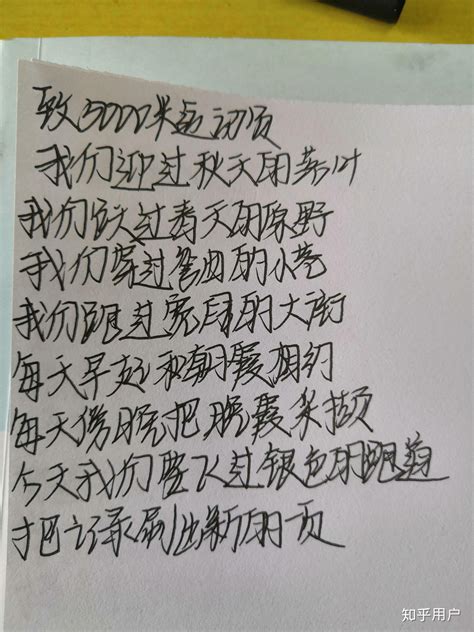 致3000米运动员
我们迎过秋天的落叶
我们跃过春天的原野
我们穿过弯曲的小巷
我们跑过宽阔的大街
每天早起和朝霞相约
每天傍晚把晚霞采撷
今天我们要飞过银色的跑道
把记录刷出新的一页
知乎用户